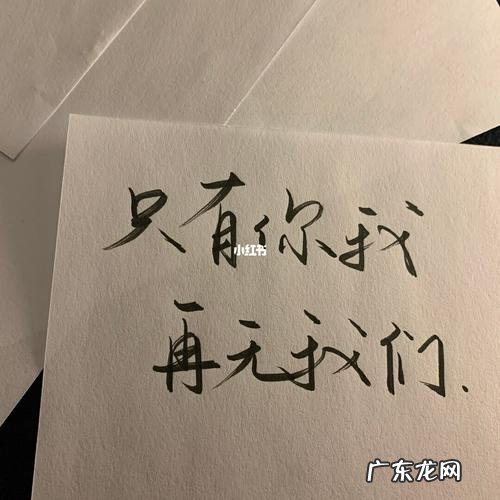 只有你我
小红书
再无我们.
广东龙网